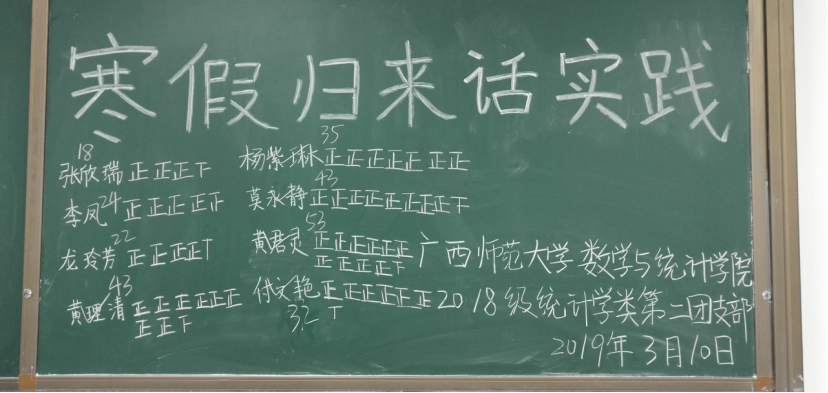 寒假归来话实践
18
张欣瑞 正正正下
李凤 24 正正正正下
22
龙玲芳 正正正正丅
43
黄理清 正正正正正正
正正下
35
杨紫琳 正正正正正正正
43
莫永静 正正正正正正正正下
53
黄君灵 正正正正正正
正正正正下
付文艳 正正正正正正
32 丅
广西师范大学数学与统计学院
2018级统计学类第二团支部
2019年3月10日